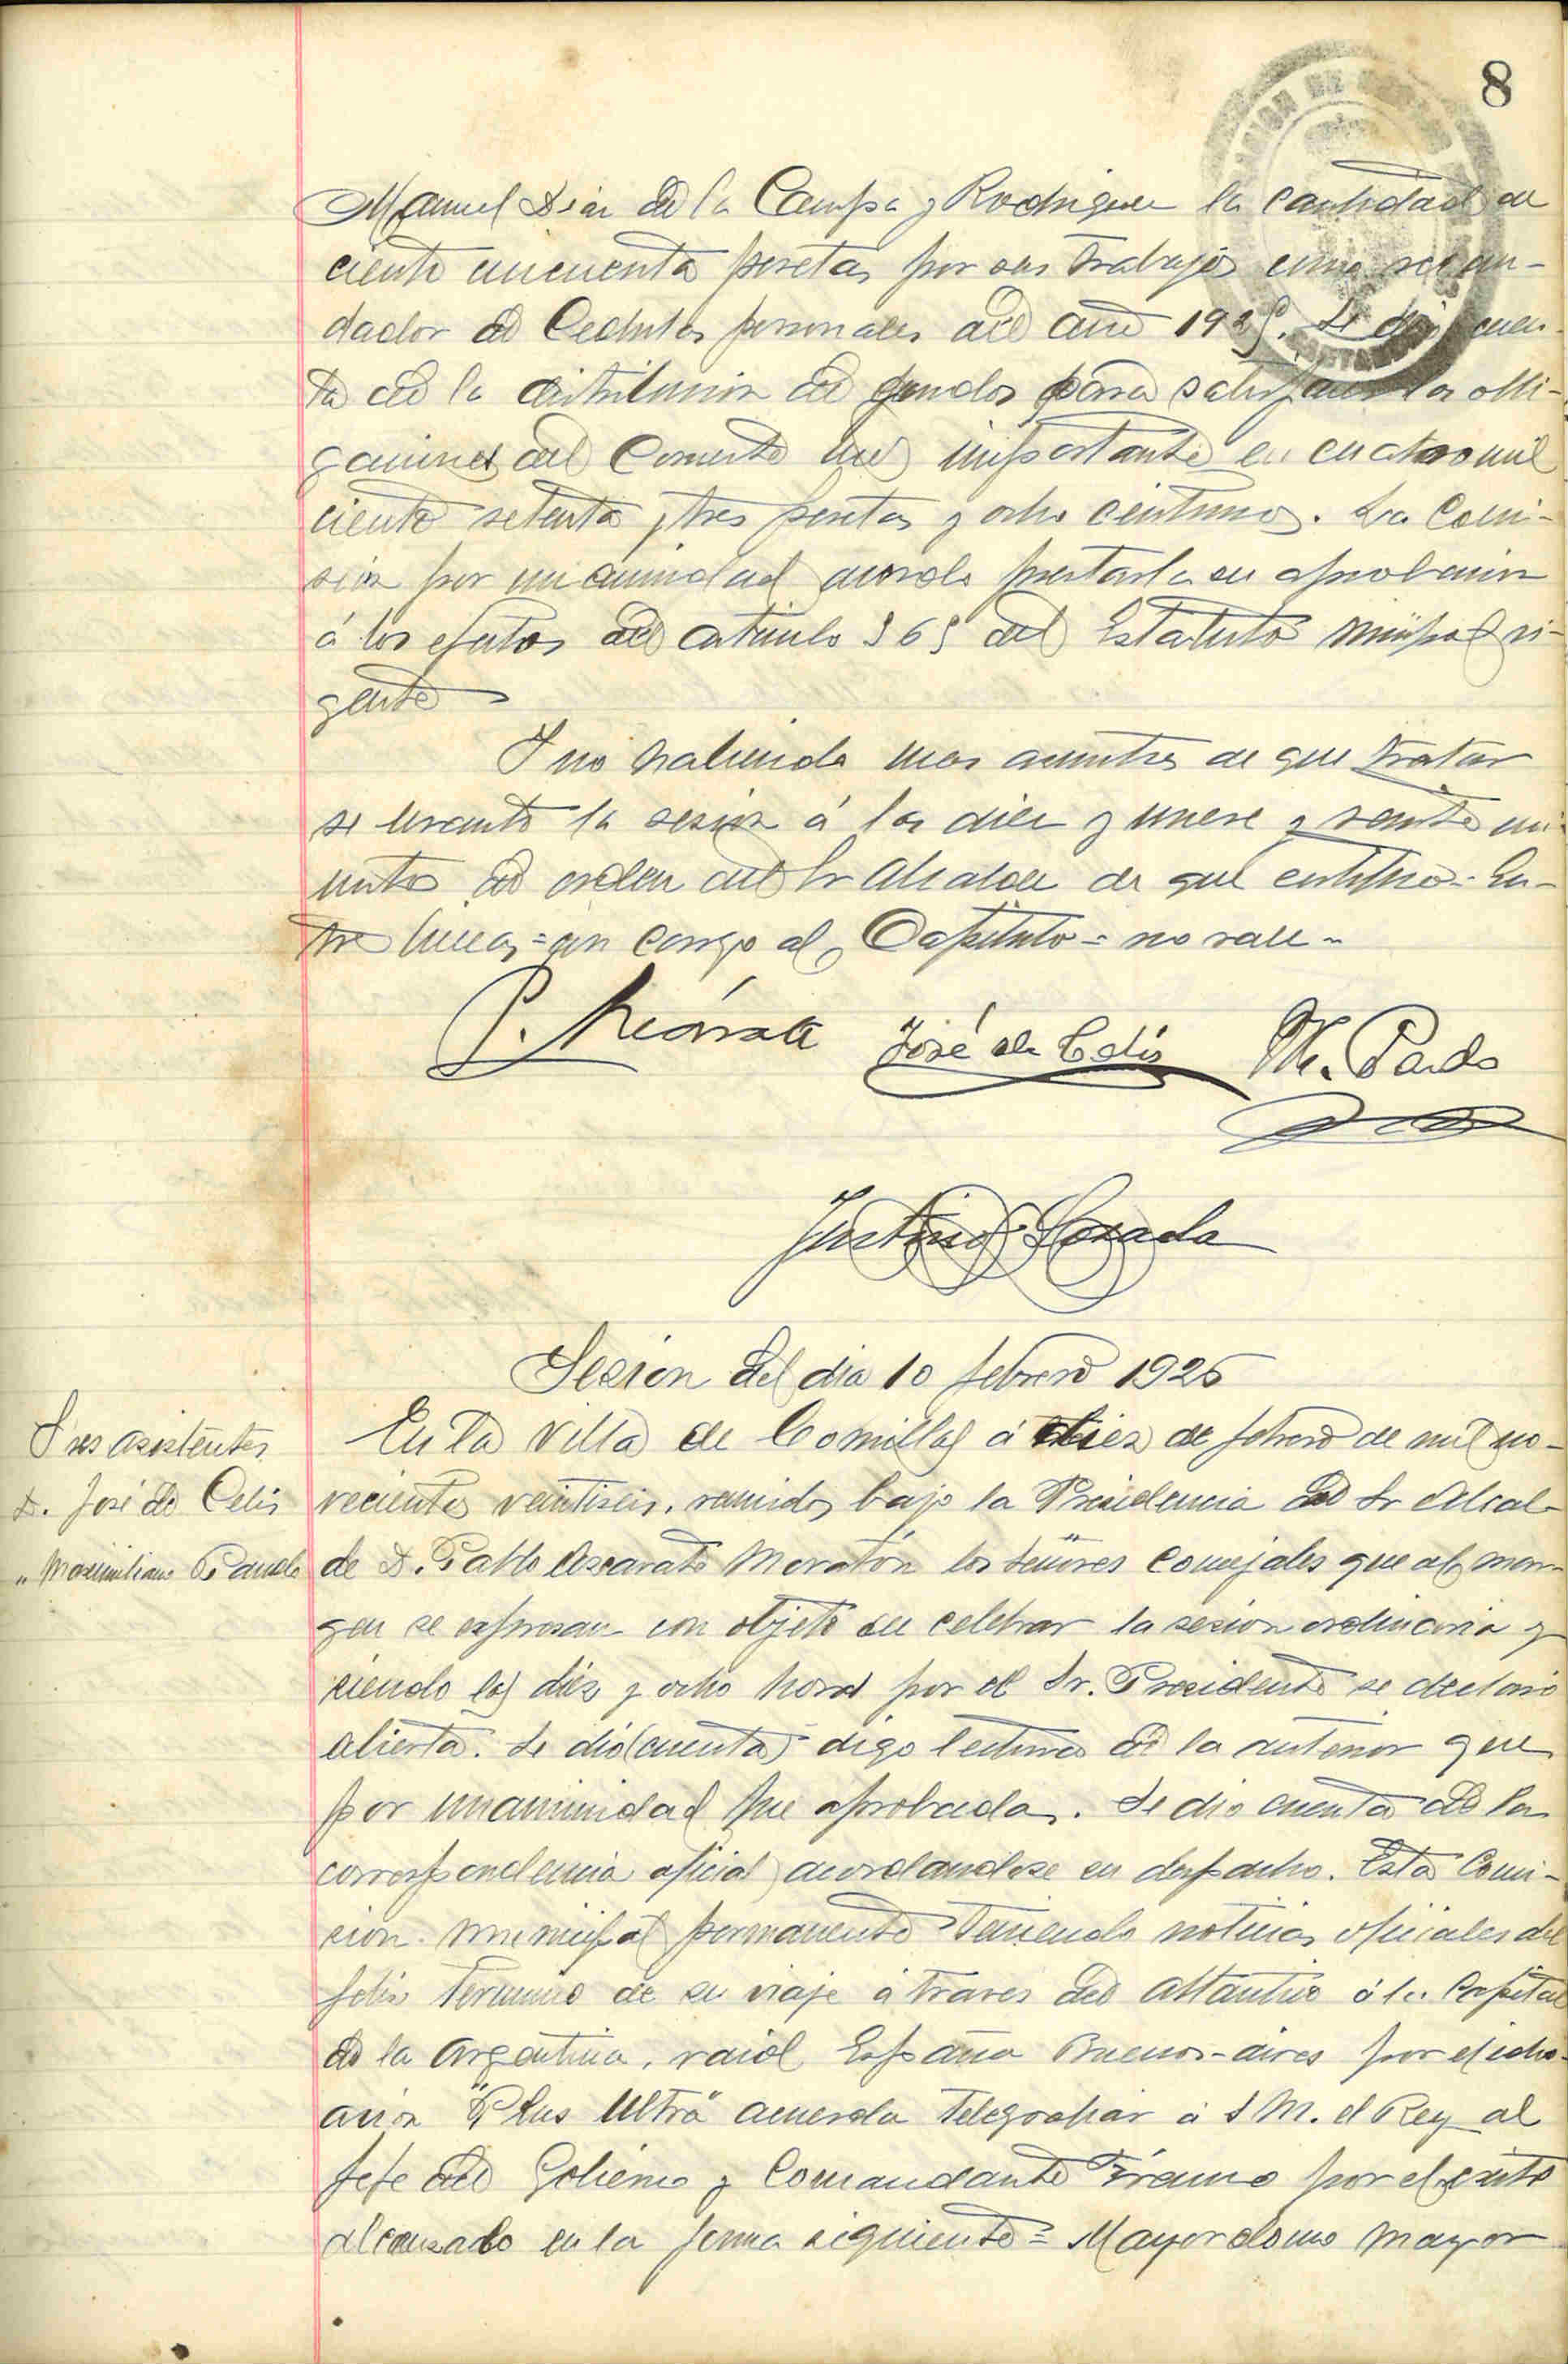 8
Manuel Diaz de la Campa y Rodriguez la cantidad de
ciento cincuenta pesetas por sus trabajos como recau-
dador de Cedulas personales del año 1925. Se dió cuen-
ta de la distribucion de fondos para satisfacer las obli-
gaciones del corriente mes importante en cuatro mil
ciento setenta y tres pesetas y ocho centimos. La Comi-
sion por unanimidad acordo prestarla su aprobacion
á los efectos del articulo 565 del Estatuto Mũipal vi-
gente
Y no habiendo mas asuntos de que tratar
se levantó la sesion á las diez y nueve y veinte mi-
nutos de orden del Sr Alcalde de que certifico = En-
tre lineas = con cargo al Capitulo = no vale =
P. Ascárate José de Celis M. Pardo
Justino Lozada
Sesion del dia 10 febrero 1926
Sres asistentes
D. José de Celis
" Maximiliano Pardo
En la Villa de Comillas á diez de febrero de mil no-
vecientos veintiseis, reunidos bajo la Presidencia del Sr Alcal-
de D. Pablo Ascarate Moratón los señores Concejales que al mar-
gen se expresan con objeto de celebrar la sesion ordinaria y
siendo las diez y ocho horas por el Sr. Presidente se declaró
abierta. Se dió (cuenta) digo lectura de la anterior que
por unanimidad fue aprobada. Se dio cuenta de la
correspondencia oficial acordandose su despacho. Esta Comi-
sion municipal permanente teniendo noticias oficiales del
feliz termino de su viaje á traves del Atlantico á la Capital
de la Argentina, raid España Buenos-aires por el idro-
avión "Plus Ultra" acuerda telegrafiar á S M. el Rey al
Jefe del Gobierno y Comandante Franco por el exito
alcanzado en la forma siguiente = Mayordomo Mayor